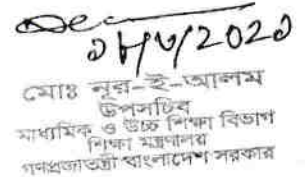 মোঃ নূর-ই-আলম
উপসচিব
মাধ্যমিক ও উচ্চ শিক্ষা বিভাগ
শিক্ষা মন্ত্রণালয়
গণপ্রজাতন্ত্রী বাংলাদেশ সরকার